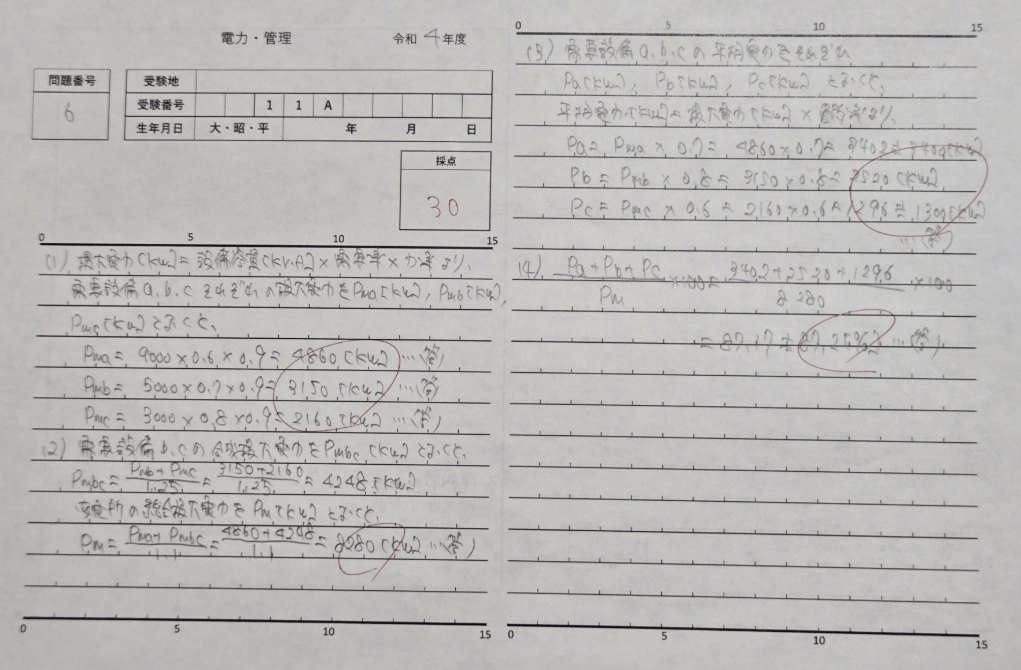 電力・管理 令和 4 年度
問題番号
6
受験地
受験番号 1 1 A
生年月日 大・昭・平 年 月 日
採点
30
0 5 10 15
(1) 最大電力[kW]=設備容量[kV・A]×需要率×力率より、
需要設備a,b,cそれぞれの最大電力をPma[kW], Pmb[kW],
Pmc[kW]とおくと、
Pma = 9000×0.6×0.9=4860[kW] …(答)
Pmb = 5000×0.7×0.9=3150[kW] …(答)
Pmc = 3000×0.8×0.9=2160[kW] …(答)
(2) 需要設備b,cの合成最大電力をPmbc[kW]とおくと、
Pmbc = (Pmb+Pmc)/1.25 = (3150+2160)/1.25 = 4248[kW]
変電所の総合最大電力をPm[kW]とおくと、
Pm = (Pma+Pmbc)/1.1 = (4860+4248)/1.1 = 8280[kW] …(答)
0 5 10 15
0 5 10 15
(3) 需要設備a,b,cの平均電力をそれぞれ
Pa[kW], Pb[kW], Pc[kW]とおくと、
平均電力[kW]=最大電力[kW]×負荷率より、
Pa = Pma×0.7=4860×0.7=3402≒3400[kW]
Pb = Pmb×0.8=3150×0.8=2520[kW]
Pc = Pmc×0.6=2160×0.6=1296≒1300[kW]
…(答)
(4) (Pa+Pb+Pc)/Pm ×100 = (3402+2520+1296)/8280 ×100
=87.17≒87.2[%] …(答)
0 5 10 15